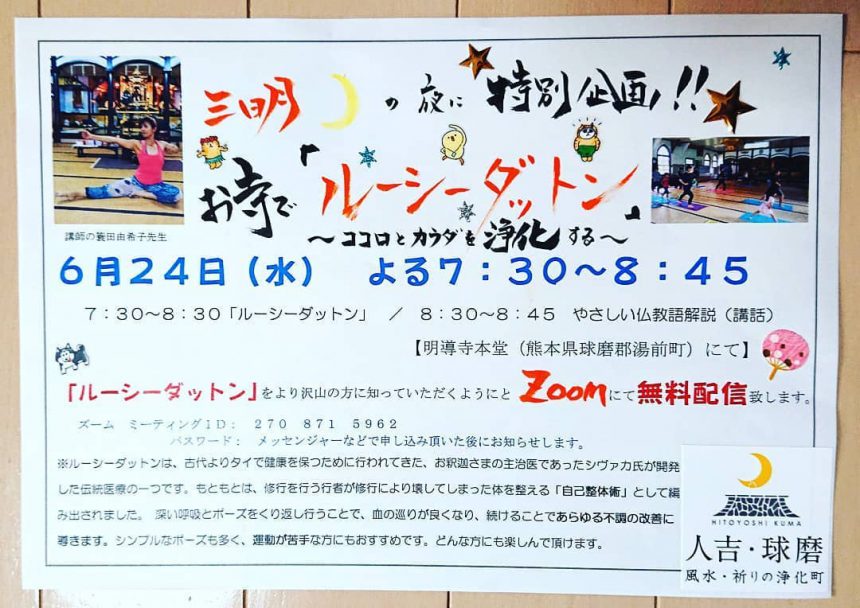 三日月 の夜に 特別企画!!
お寺で「ルーシーダットン」
～ココロとカラダを浄化する～
講師の簑田由希子先生
６月２４日（水）　よる７：３０～８：４５
７：３０～８：３０「ルーシーダットン」　／　８：３０～８：４５　やさしい仏教語解説（講話）
【明導寺本堂（熊本県球磨郡湯前町）にて】
「ルーシーダットン」をより沢山の方に知っていただくようにと Zoomにて無料配信致します。
ズーム　ミーティングＩＤ：　２７０　８７１　５９６２
パスワード：　メッセンジャーなどで申し込み頂いた後にお知らせします。
※ルーシーダットンは、古代よりタイで健康を保つために行われてきた、お釈迦さまの主治医であったシヴァカ氏が開発
した伝統医療の一つです。もともとは、修行を行う行者が修行により壊してしまった体を整える「自己整体術」として編
み出されました。 深い呼吸とポーズをくり返し行うことで、血の巡りが良くなり、続けることであらゆる不調の改善に
導きます。シンプルなポーズも多く、運動が苦手な方にもおすすめです。どんな方にも楽しんで頂けます。
HITOYOSHI KUMA
人吉・球磨
風水・祈りの浄化町